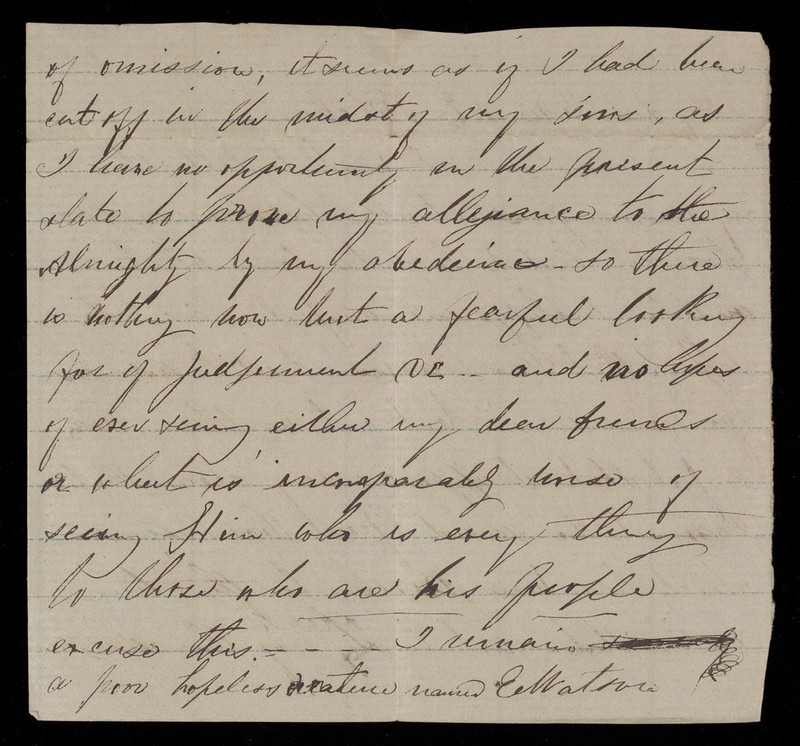 of omission, it seems as if I had been
cut off in the midst of my sins, as
I have no opportunity in the present
state to prove my allegiance to the
Almighty by my obedience - so there
is nothing now but a fearful looking
for of judgement &c -- and no hopes
of ever seeing either my dear friends
or what is incomparably worse of
seeing Him who is every thing
to those who are his people
excuse this. - - - - I remain
a poor hopeless creature named E Watson